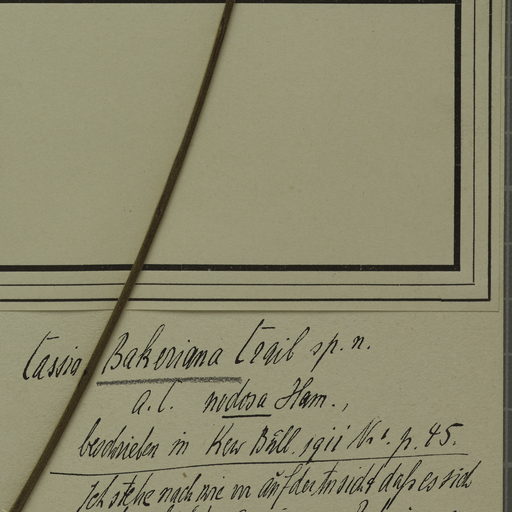 Cassia Bakeriana Craib sp. n.
a. l. nodosa Ham.,
beschrieben in Kew Bull. 1911 p. 45.
Ich stehe nach wie vor auf der Ansicht daß es sich